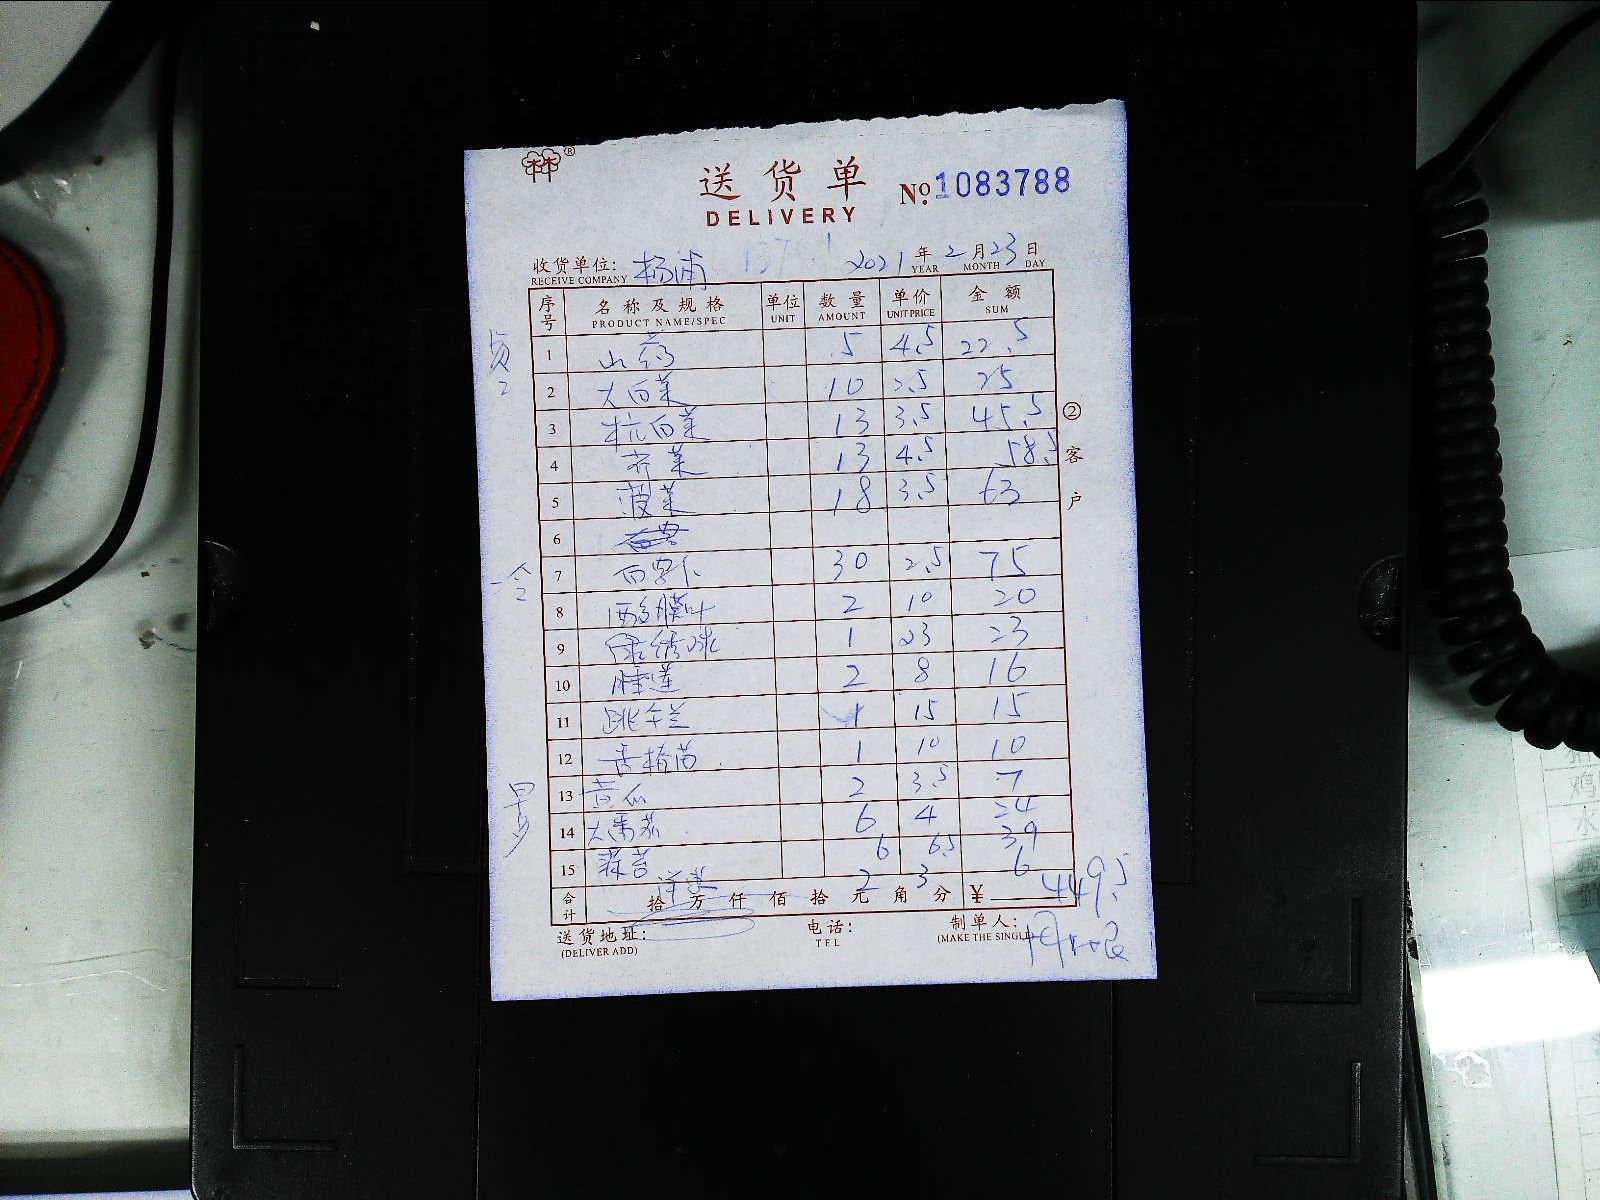 林®
送货单
DELIVERY
№ 1083788
收货单位: 杨浦 2021年2月23日
RECEIVE COMPANY YEAR MONTH DAY
序号 名称及规格 单位 数量 单价 金额
PRODUCT NAME/SPEC UNIT AMOUNT UNIT PRICE SUM
1 山药 5 4.5 22.5
2 大白菜 10 2.5 25
3 杭白菜 13 3.5 45.5
4 荠菜 13 4.5 58.5
5 菠菜 18 3.5 63
6
7 白罗卜 30 2.5 75
8 2 10 20
9 绿绣球 1 23 23
10 睡莲 2 8 16
11 跳午兰 1 15 15
12 1 10 10
13 黄瓜 2 3.5 7
14 大番茄 6 4 24
15 蒜苔 6 6.5 39
洋葱 2 3 6
合计 拾万仟佰拾元角分 ¥ 449.5
送货地址: 电话: 制单人:
(DELIVER ADD) TEL (MAKE THE SINGLE)
②客户
鸡
水